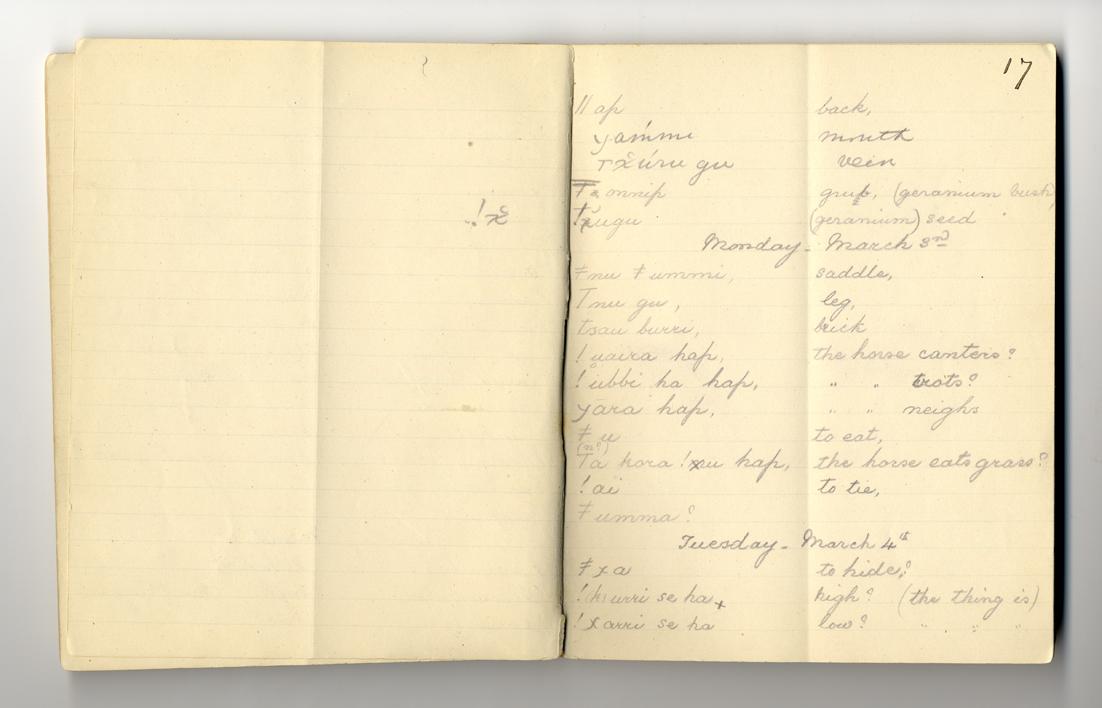 17
ǁ ap back,
yámmi mouth
gu vein
onnip grub, (geranium bush)
ugu (geranium) seed
Monday - March 3rd
ǂnu ǂummi, saddle,
Tnu gu, leg,
tsau burri, brick
!uaira hap, the horse canters?
!ubbi ha hap, " " trots?
yāra hap, " " neighs
ǂ u to eat,
(n?)
Ta hora !xu hap, the horse eats grass?
!ai to tie,
ǂumma?
Tuesday - March 4th
ǂxa to hide,?
!(k)urri se ha + high? (the thing is)
!xarri se ha low? " " "